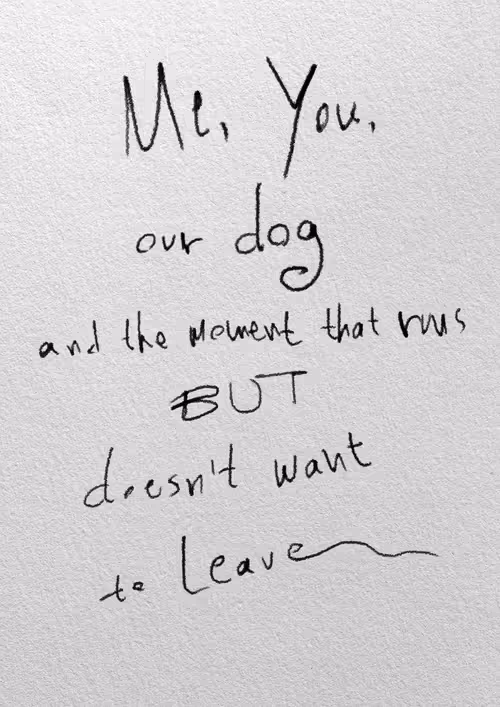 Me, You,
our dog
and the moment that runs
BUT
doesn't want
to Leave